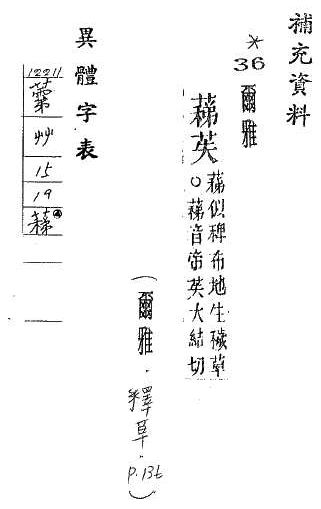 補充資料
*
36
爾雅
蕛苵
蕛似稗布地生穢草
○蕛音帝苵大結切
(爾雅．釋草．P.136)
異體字表
12211
艸
15
19
蕛